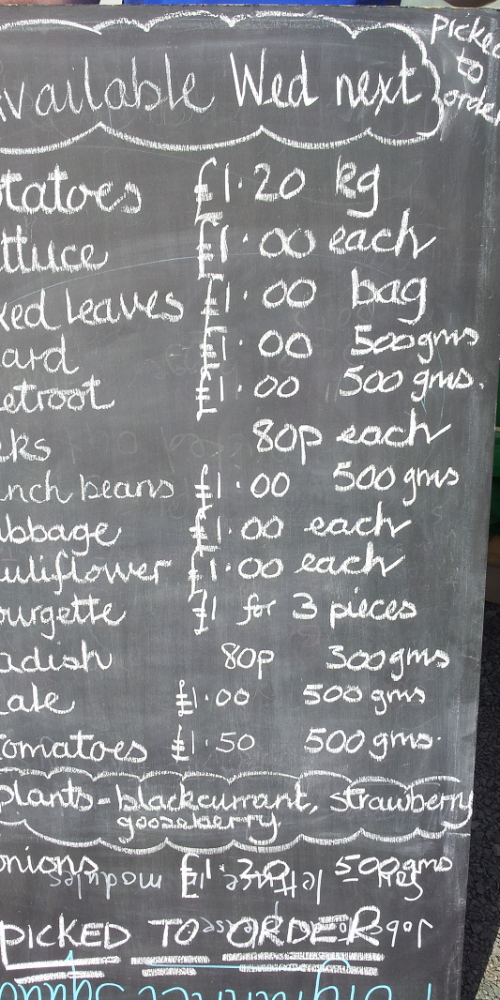 Available Wed next
Picked
to
order
otatoes £1.20 kg
ettuce £1.00 each
xed leaves £1.00 bag
ard £1.00 500gms
eetroot £1.00 500 gms.
eks 80p each
ench beans £1.00 500gms
abbage £1.00 each
auliflower £1.00 each
ourgette £1 for 3 pieces
adish 80p 300gms
ale £1.00 500gms
tomatoes £1.50 500gms.
plants - blackcurrant, strawberry
gooseberry.
onions £1.20 500gms
PICKED TO ORDER